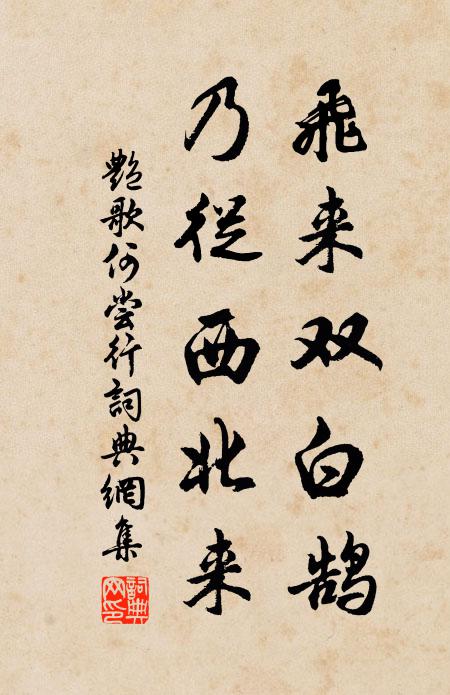 飛来双白鹄
乃從西北来
艶歌何尝行詞典網集
詞典网印